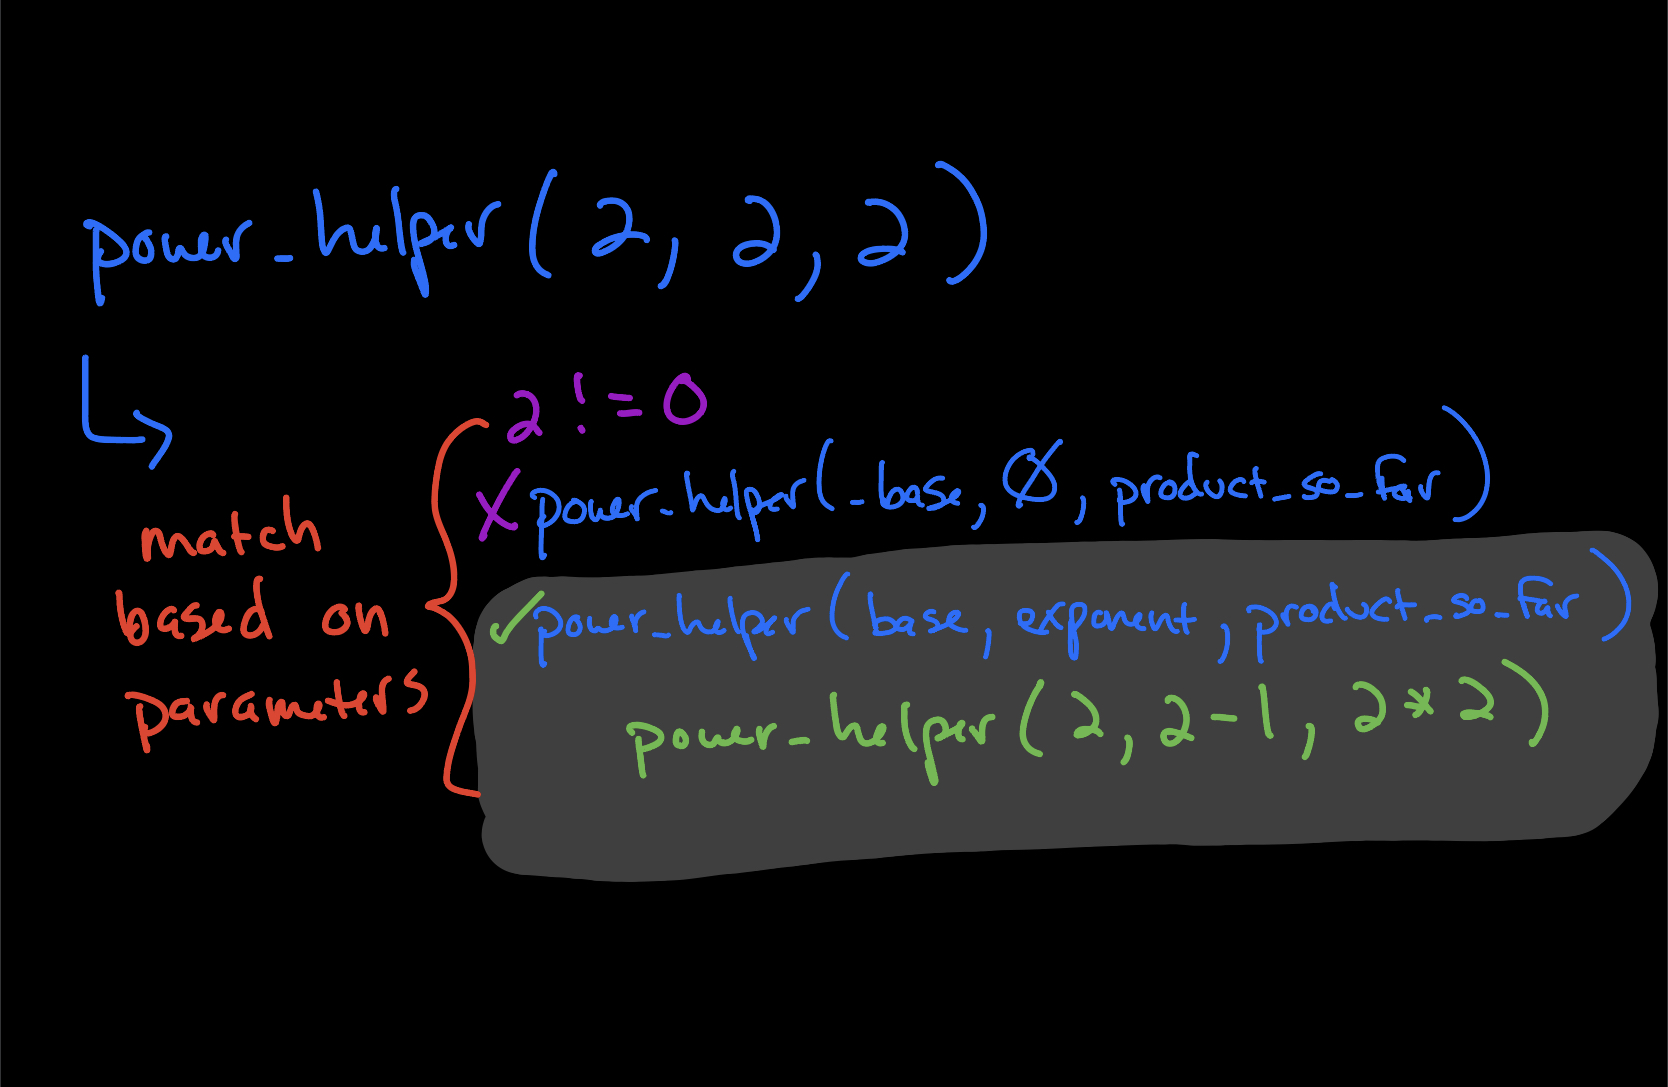 power_helper(2, 2, 2)
2 != 0
match
based on
parameters
X power_helper(_base, 0, product_so_far)
✓ power_helper(base, exponent, product_so_far)
power_helper(2, 2-1, 2*2)